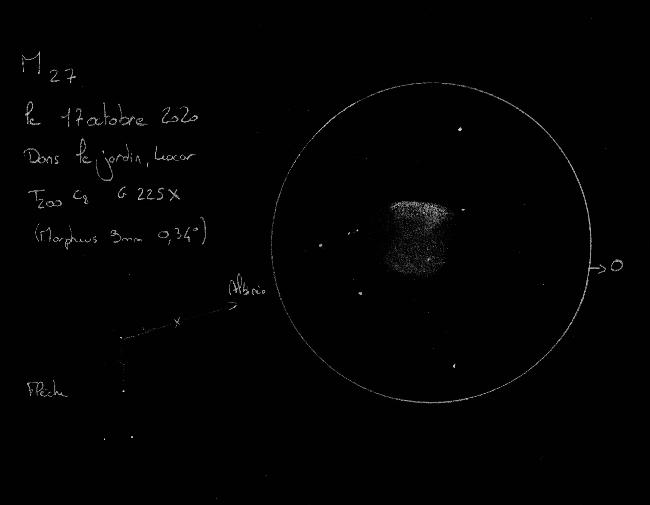 M27
le 17 octobre 2020
Dans le jardin,
T200 C8 G 225X
(Morpheus 9mm 0,34°)
Albireo
O
Flèche